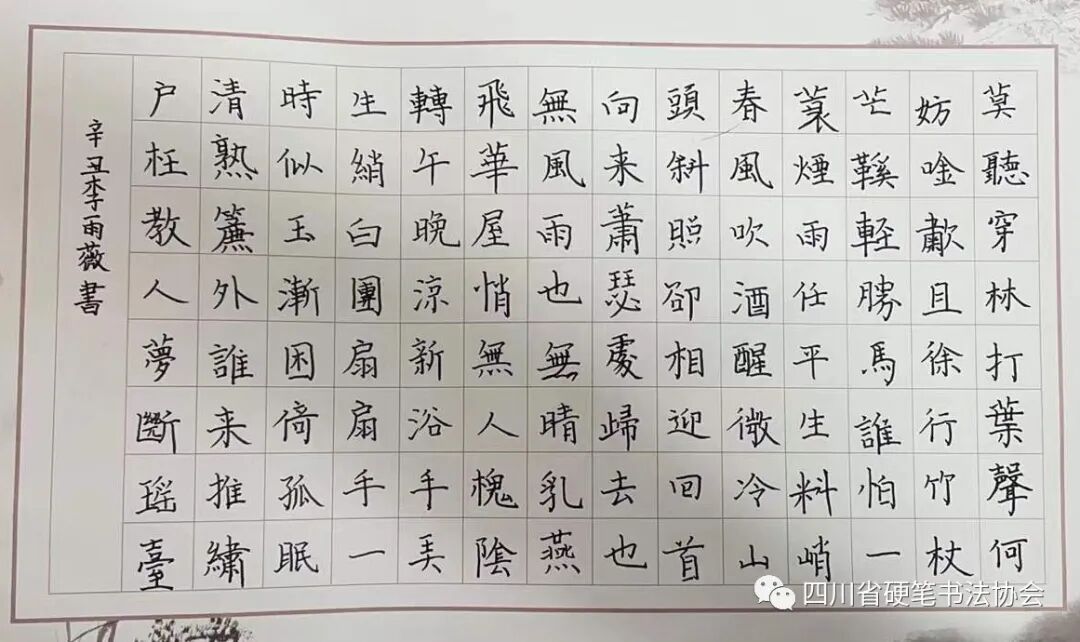 莫聽穿林打葉聲何
妨唫歗且徐行竹杖
芒鞵輕勝馬誰怕一
蓑煙雨任平生料峭
春風吹酒醒微冷山
頭斜照卻相迎回首
向来蕭瑟處歸去也
無風雨也無晴乳燕
飛華屋悄無人槐陰
轉午晚涼新浴手弄
生綃白團扇扇手一
時似玉漸困倚孤眠
清熟簾外誰来推繡
户枉教人夢斷瑶臺
辛丑李雨薇書
四川省硬笔书法协会